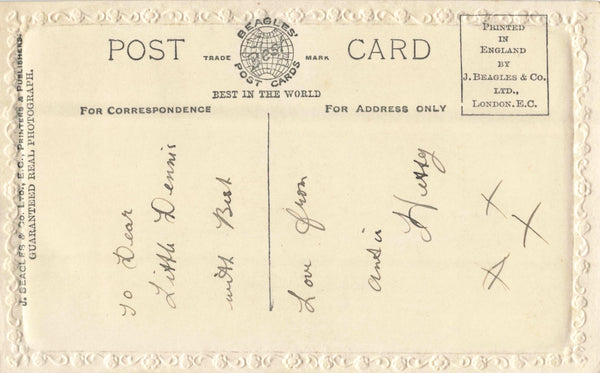 POST CARD
TRADE MARK
BEAGLES'
POST CARDS
BEST IN THE WORLD
PRINTED
IN
ENGLAND
BY
J. BEAGLES & CO.
LTD.,
LONDON. E.C.
FOR CORRESPONDENCE
FOR ADDRESS ONLY
J. BEAGLES & CO. LTD., E.C., PRINTERS & PUBLISHERS.
GUARANTEED REAL PHOTOGRAPH.
To Dear
Little Dennis
with Best
Love from
X X X